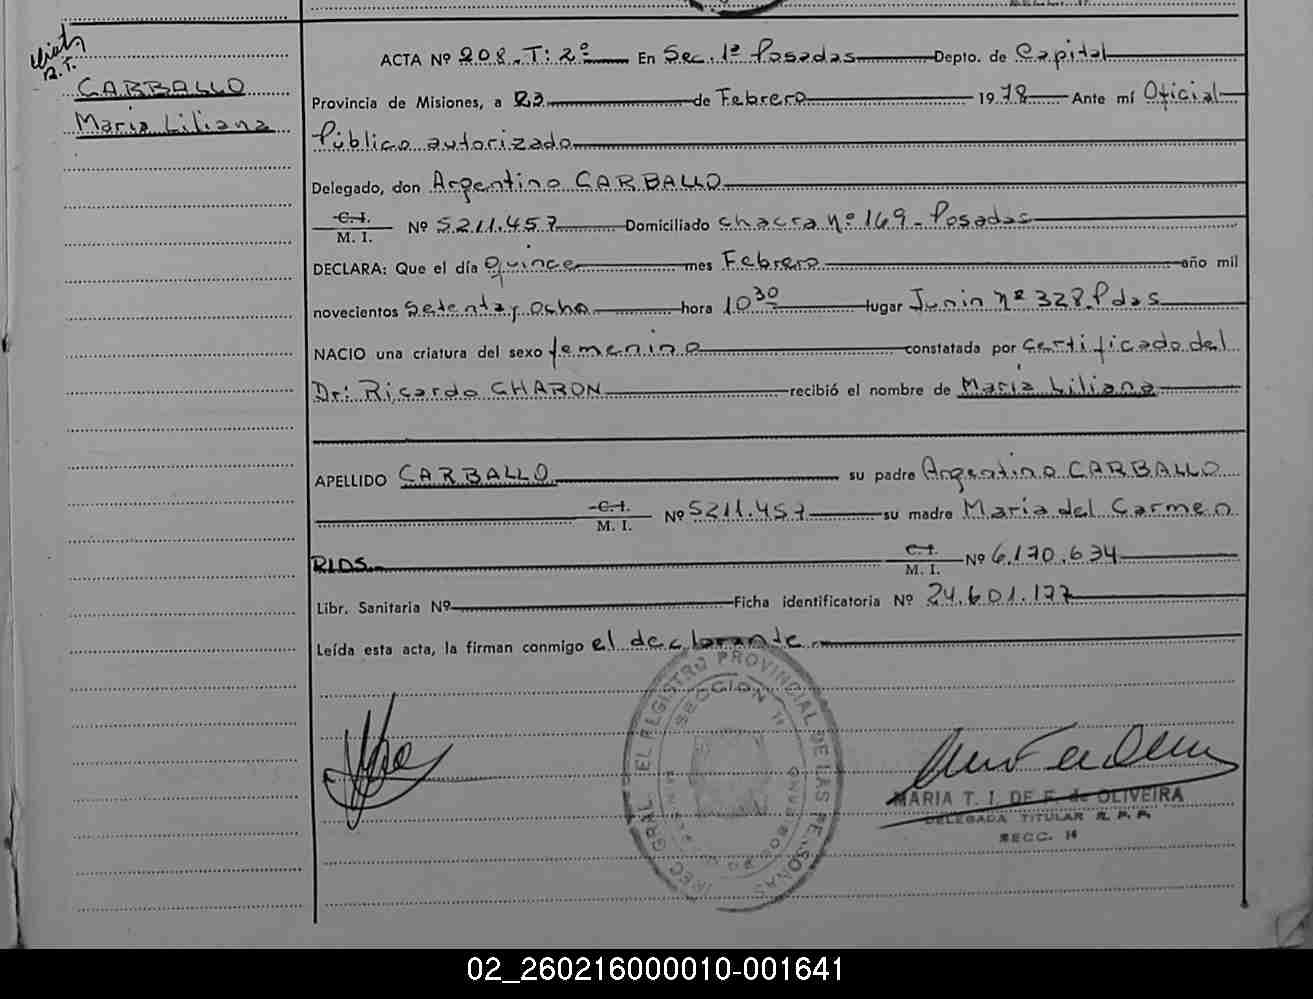 CARBALLO
María Liliana
ACTA Nº 208. T: 2º En Sec. 1ª Posadas Depto. de Capital
Provincia de Misiones, a 23 de Febrero 1978 Ante mí Oficial
Público autorizado
Delegado, don Argentino CARBALLO
C.I.
M. I. Nº 5.211.457 Domiciliado chacra nº 169 - Posadas
DECLARA: Que el día quince mes Febrero año mil
novecientos Setenta y Ocho hora 10 30 lugar Junin nº 328 Pdas
NACIO una criatura del sexo femenino constatada por Certificado del
Dr: Ricardo CHARON recibió el nombre de María Liliana
APELLIDO CARBALLO su padre Argentino CARBALLO
C.I.
M. I. Nº 5211.457 su madre María del Carmen
RIOS. C.I.
M. I. Nº 6.170.634
Libr. Sanitaria Nº Ficha identificatoria Nº 24.601.177
Leída esta acta, la firman conmigo el declarante
DIREC. GRAL. EL REGISTRO PROVINCIAL DE LAS PERSONAS
SECCION
MARIA T. I. DE F. de OLIVEIRA
DELEGADA TITULAR R. P. P.
SECC. 1ª
02_260216000010-001641